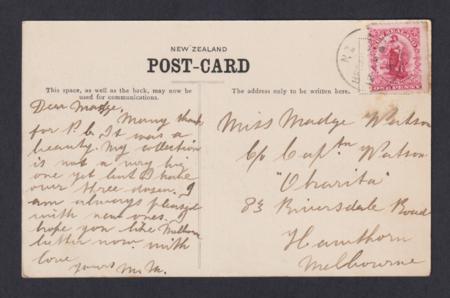 NEW ZEALAND
POST-CARD
This space, as well as the back, may now be
used for communications.
The address only to be written here.
Dear Madge,
Many thanks
for P.C. It was a
beauty. My collection
is not a very big
one yet but I have
over three dozen. I
am always pleased
with new ones. I
hope you like Melbour
better now. with
love
yours M.M.
Miss Madge Watson
C/o Captn Watson
"Oharita"
83 Riversdale Road
Hawthorn
Melbourne
ONE PENNY